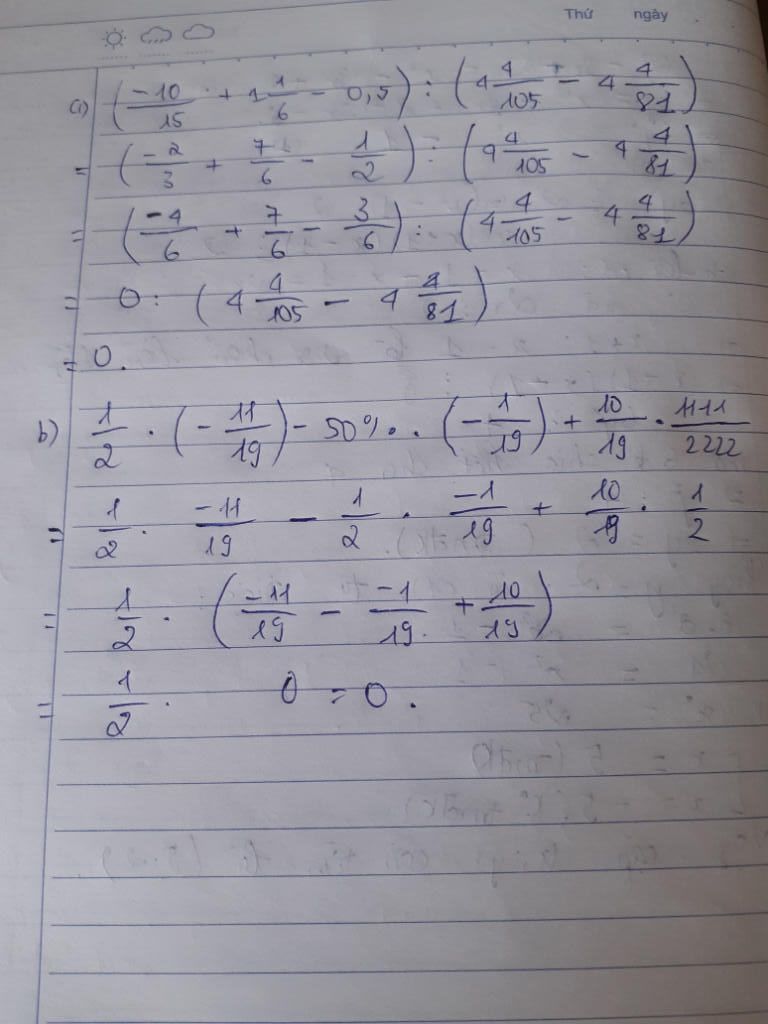 Thứ ngày
a) (-10/15 + 1 1/6 - 0,5) : (4 4/105 - 4 4/81)
= (-2/3 + 7/6 - 1/2) : (4 4/105 - 4 4/81)
= (-4/6 + 7/6 - 3/6) : (4 4/105 - 4 4/81)
= 0 : (4 4/105 - 4 4/81)
= 0.
b) 1/2 . (- 11/19) - 50% . (- 1/19) + 10/19 . 1111/2222
= 1/2 . -11/19 - 1/2 . -1/19 + 10/19 . 1/2
= 1/2 . (-11/19 - -1/19 + 10/19)
= 1/2 . 0 = 0.